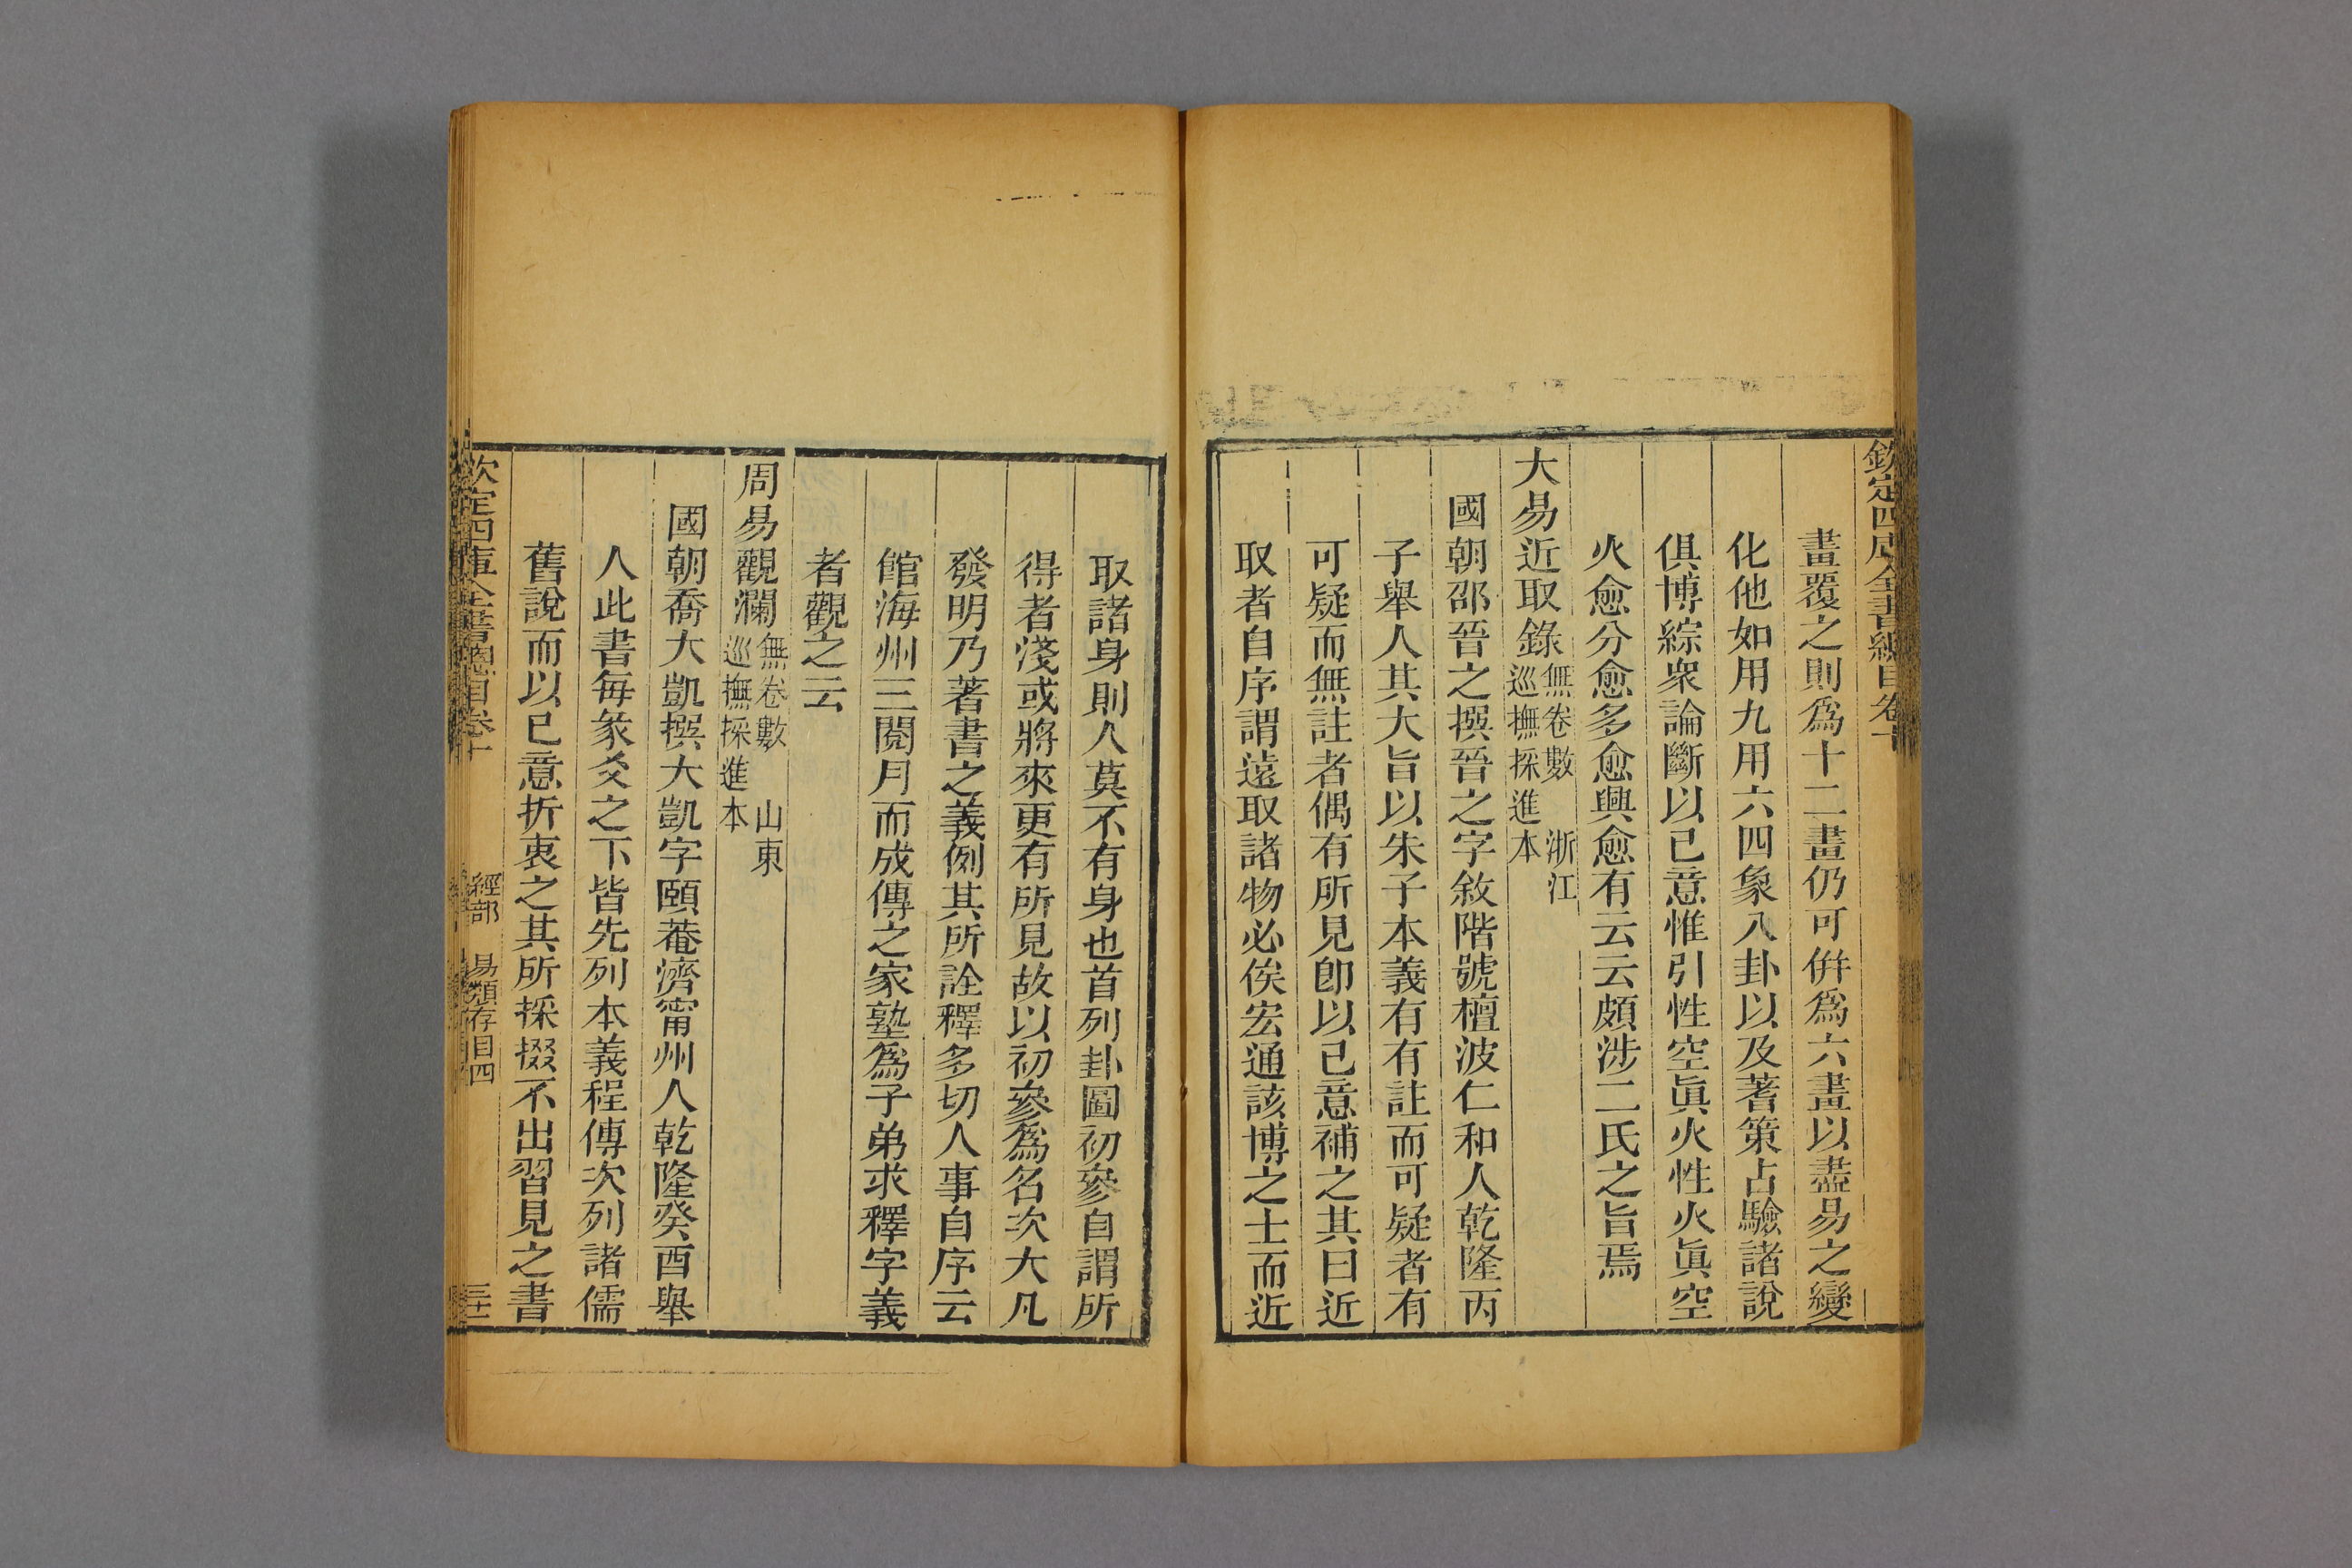 欽定四庫全書總目卷十
畫覆之則爲十二畫仍可併爲六畫以盡易之變
化他如用九用六四象八卦以及蓍策占驗諸說
俱博綜衆論斷以已意惟引性空眞火性火眞空
火愈分愈多愈興愈有云云頗涉二氏之旨焉
大易近取錄無卷數 浙江
巡撫採進本
國朝邵晉之撰晉之字敘階號檀波仁和人乾隆丙
子舉人其大旨以朱子本義有有註而可疑者有
可疑而無註者偶有所見卽以已意補之其曰近
取者自序謂遠取諸物必俟宏通該博之士而近
取諸身則人莫不有身也首列卦圖初參自謂所
得者淺或將來更有所見故以初參爲名次大凡
發明乃著書之義例其所詮釋多切人事自序云
館海州三閱月而成傳之家塾爲子弟求釋字義
者觀之云
周易觀瀾無卷數 山東
巡撫採進本
國朝喬大凱撰大凱字頤菴濟甯州人乾隆癸酉舉
人此書每彖爻之下皆先列本義程傳次列諸儒
舊說而以已意折衷之其所採掇不出習見之書
欽定四庫全書總目卷十 經部 易類存目四